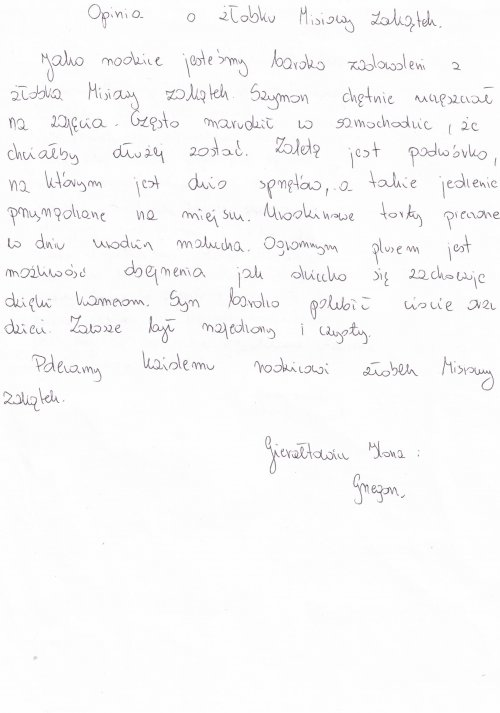 Opinia o żłobku Misiowy Zakątek.
Jako rodzice jesteśmy bardzo zadowoleni z
żłobka Misiowy zakątek. Szymon chętnie uczęszczał
na zajęcia. Często marudził w samochodzie, że
chciałby dłużej zostać. Zaletą jest podwórko,
na którym jest dużo sprzętów, a także jedzenie
przyrządzane na miejscu. Urodzinowe torty pieczone
w dniu urodzin malucha. Ogromnym plusem jest
możliwość obejrzenia jak dziecko się zachowuje
dzięki kamerom. Syn bardzo polubił ciocie oraz
dzieci. Zawsze był najedzony i czysty.
Polecamy każdemu rodzicowi żłobek Misiowy
zakątek.
Ilona i
Grzegorz.